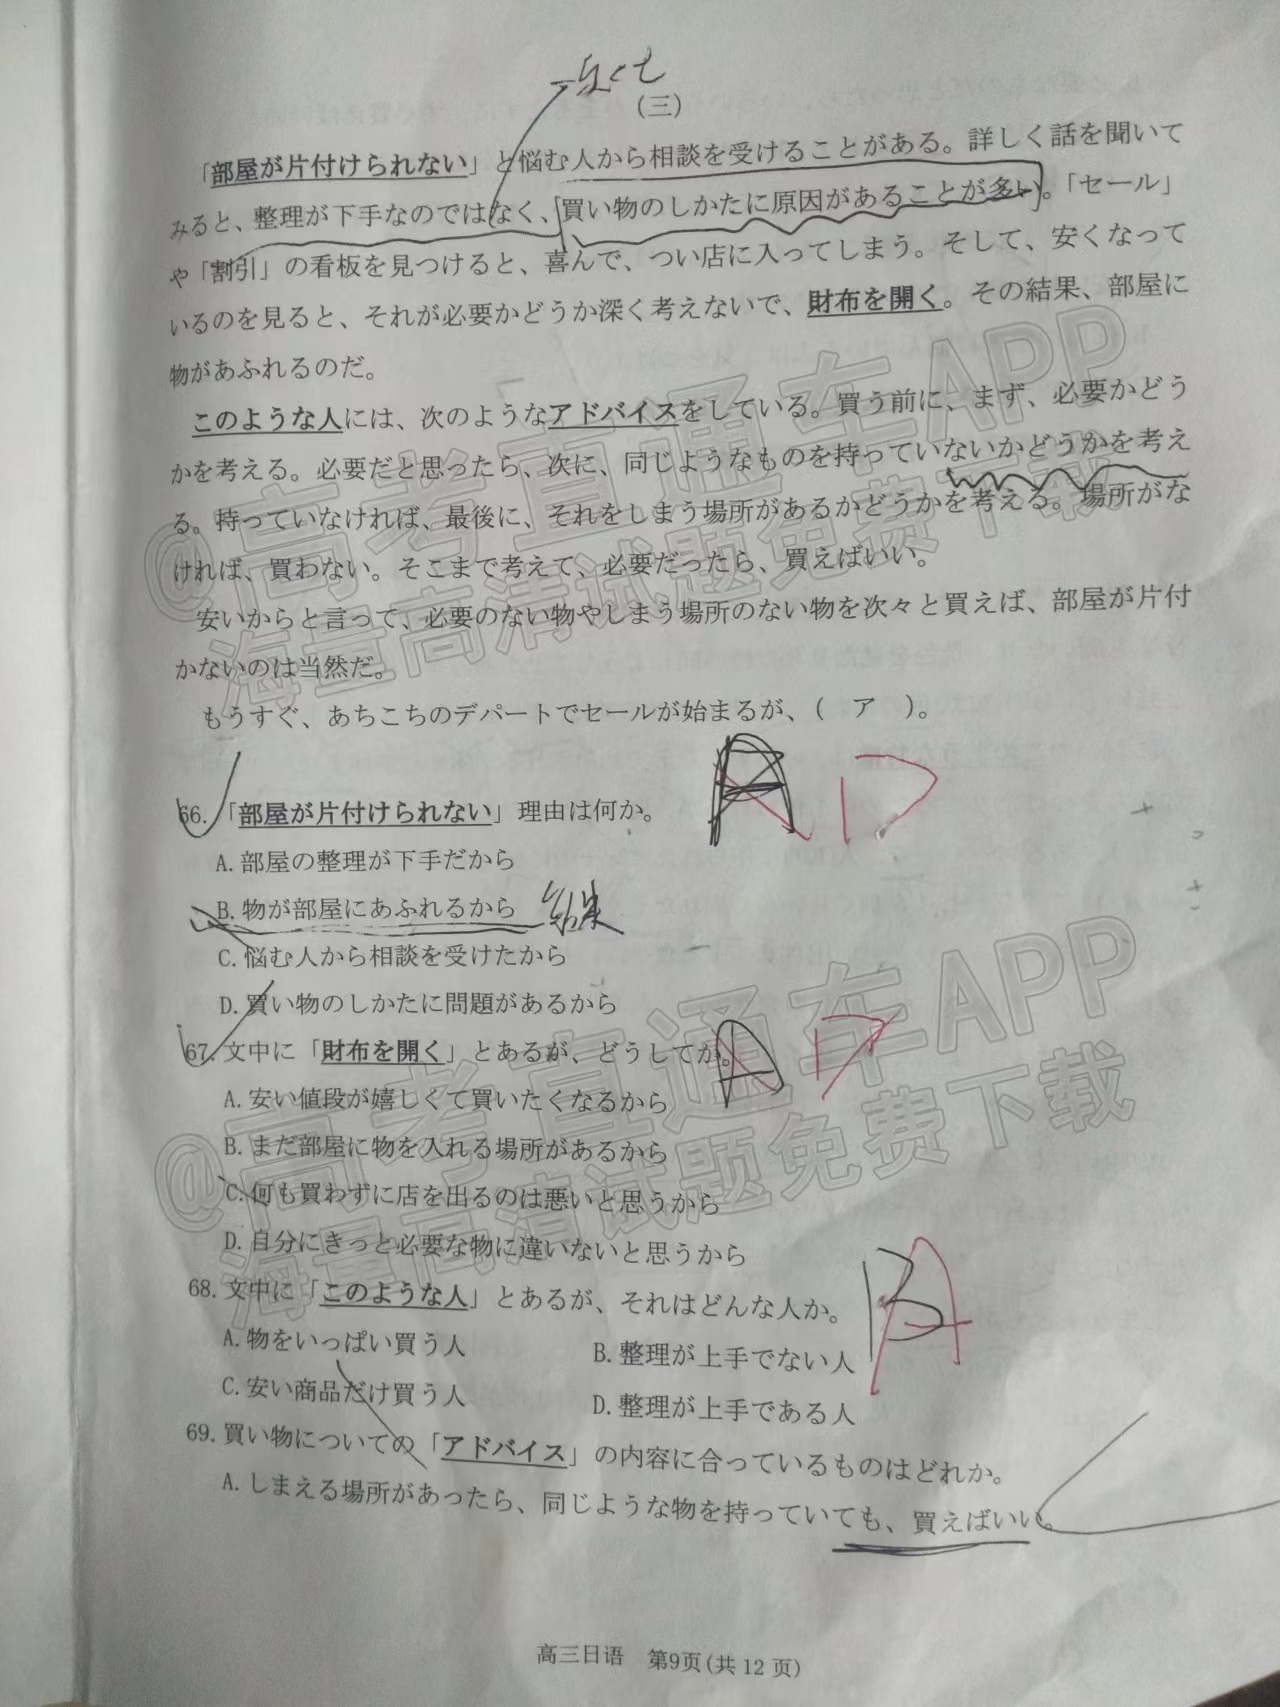 (三)
「部屋が片付けられない」と悩む人から相談を受けることがある。詳しく話を聞いて
みると、整理が下手なのではなく、買い物のしかたに原因があることが多い。「セール」
や「割引」の看板を見つけると、喜んで、つい店に入ってしまう。そして、安くなって
いるのを見ると、それが必要かどうか深く考えないで、財布を開く。その結果、部屋に
物があふれるのだ。
このような人には、次のようなアドバイスをしている。買う前に、まず、必要かどう
かを考える。必要だと思ったら、次に、同じようなものを持っていないかどうかを考え
る。持っていなければ、最後に、それをしまう場所があるかどうかを考える。場所がな
ければ、買わない。そこまで考えて、必要だったら、買えばいい。
安いからと言って、必要のない物やしまう場所のない物を次々と買えば、部屋が片付
かないのは当然だ。
もうすぐ、あちこちのデパートでセールが始まるが、( ア )。
A D
66.「部屋が片付けられない」理由は何か。
A.部屋の整理が下手だから
B.物が部屋にあふれるから 结果
C.悩む人から相談を受けたから
D.買い物のしかたに問題があるから
67.文中に「財布を開く」とあるが、どうしてか。 A D
A.安い値段が嬉しくて買いたくなるから
B.まだ部屋に物を入れる場所があるから
C.何も買わずに店を出るのは悪いと思うから
D.自分にきっと必要な物に違いないと思うから
68.文中に「このような人」とあるが、それはどんな人か。 B A
A.物をいっぱい買う人 B.整理が上手でない人
C.安い商品だけ買う人 D.整理が上手である人
69.買い物についての「アドバイス」の内容に合っているものはどれか。
A.しまえる場所があったら、同じような物を持っていても、買えばいい。
高三日语 第9页(共12页)
@高考直通车APP
海量高清试题免费下载
@高考直通车APP
海量高清试题免费下载